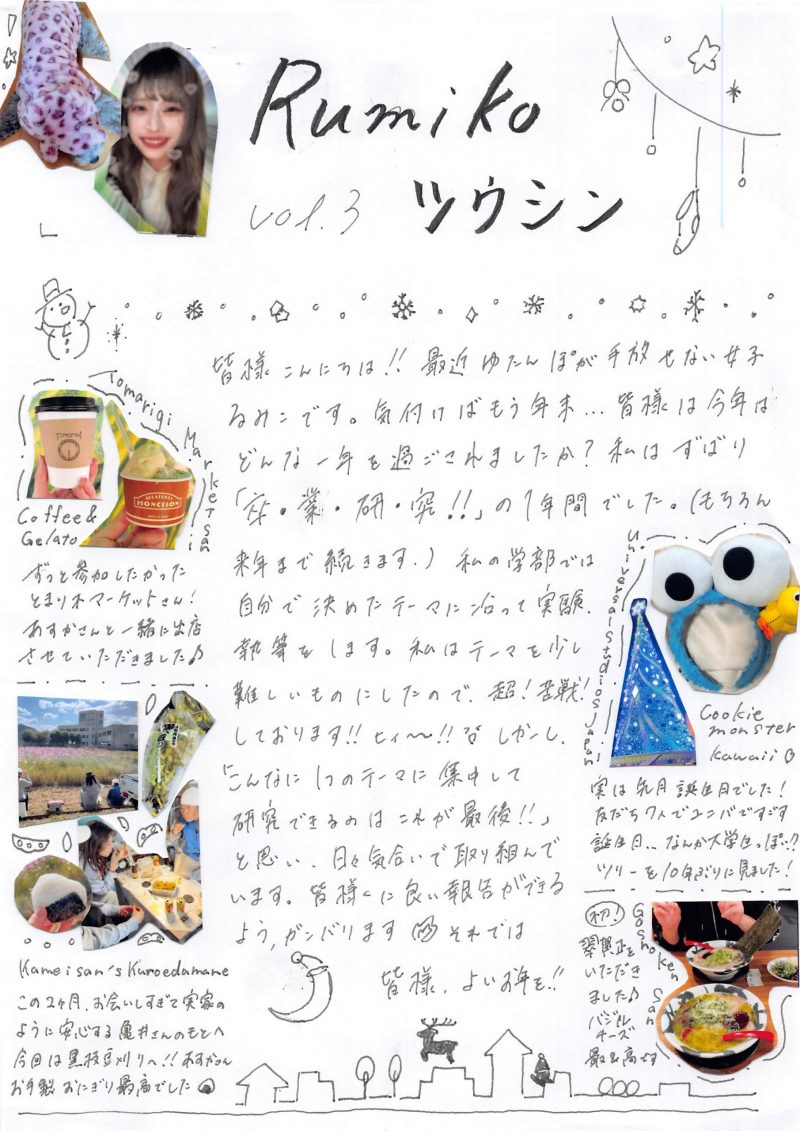 Rumiko
vol.3 ツウシン
皆様こんにちは!! 最近ゆたんぽが手放せない女子
るみこです。気付けばもう年末…皆様は今年は
どんな一年を過ごされましたか?私はずばり
「卒・業・研・究!!」の1年間でした。(もちろん
来年まで続きます.) 私の学部では
自分で決めたテーマに沿って実験、
執筆をします。私はテーマを少し
難しいものにしたので、超!苦戦!
しております!!ヒィ〜!! しかし、
「こんなに1つのテーマに集中して
研究できるのはこれが最後!!」
と思い、日々気合いで取り組んで
います。皆様に良い報告ができる
よう,ガンバリます それでは
皆様、よいお年を!!
Tomarigi Market san
TOMARIGI
GELATERIA
Coffee &
Gelato
ずっと参加したかった
とまり木マーケットさん!
あすかさんと一緒に出店
させていただきました♪
Kameisan's Kuroedamame
この2ヶ月、お会いしすぎて実家の
ように安心する亀井さんのもとへ
今回は黒枝豆刈りへ!! あすかさん
お手製おにぎり最高でした
Universal Studios Japan!
Cookie
monster
kawaii
実は先月誕生日でした!
友だち7人でユニバですごす
誕生日..なんか大学生っぽい!?
ツリーを10年ぶりに見ました!
Goshoken San
初!
翠賀正を
いただき
ました♪
バジル
チーズ
最&高です